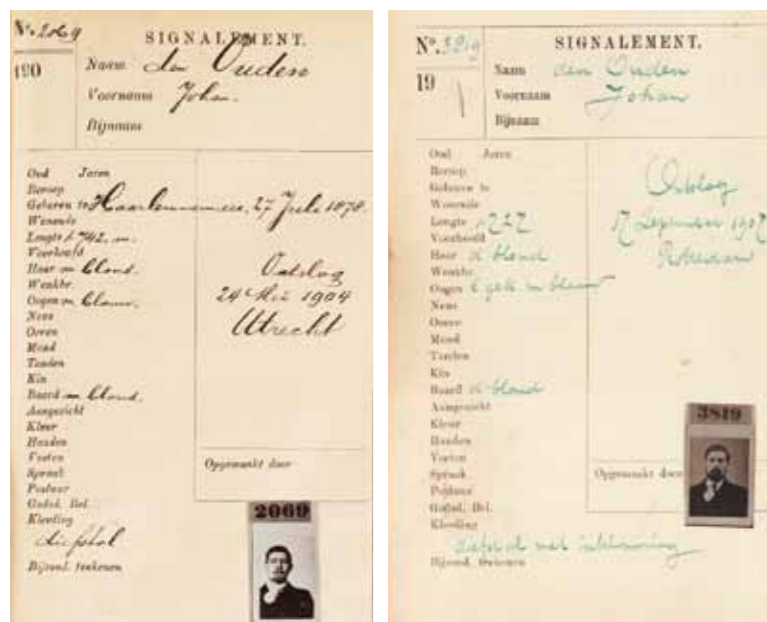 No. 2069
SIGNALEMENT.
190
Naam den Ouden
Voornaam Johan.
Bijnaam
Oud Jaren
Beroep
Geboren te Haarlemmermeer, 27 Juli 1878.
Wonende
Lengte 1.742. m.
Voorhoofd
Haar m blond.
Wenkbr.
Oogen m blauw.
Neus
Ooren
Mond
Tanden
Kin
Baard m blond.
Aangezicht
Kleur
Handen
Voeten
Spraak
Postuur
Godsd. Bel.
Kleeding
diefstal
Bijzond. teekenen
Ontslag
24 Mei 1904
Utrecht
Opgemaakt door
2069
No. 3819
SIGNALEMENT.
19
Naam den Ouden
Voornaam Johan
Bijnaam
Oud Jaren
Beroep
Geboren te
Wonende
Lengte 1.727
Voorhoofd
Haar d blond
Wenkbr.
Oogen en blauw
Neus
Ooren
Mond
Tanden
Kin
Baard d blond
Aangezicht
Kleur
Handen
Voeten
Spraak
Postuur
Godsd. Bel.
Kleeding
diefstal met inklimming
Bijzond. teekenen
Ontslag
17 September 1907
Rotterdam
Opgemaakt door
3819